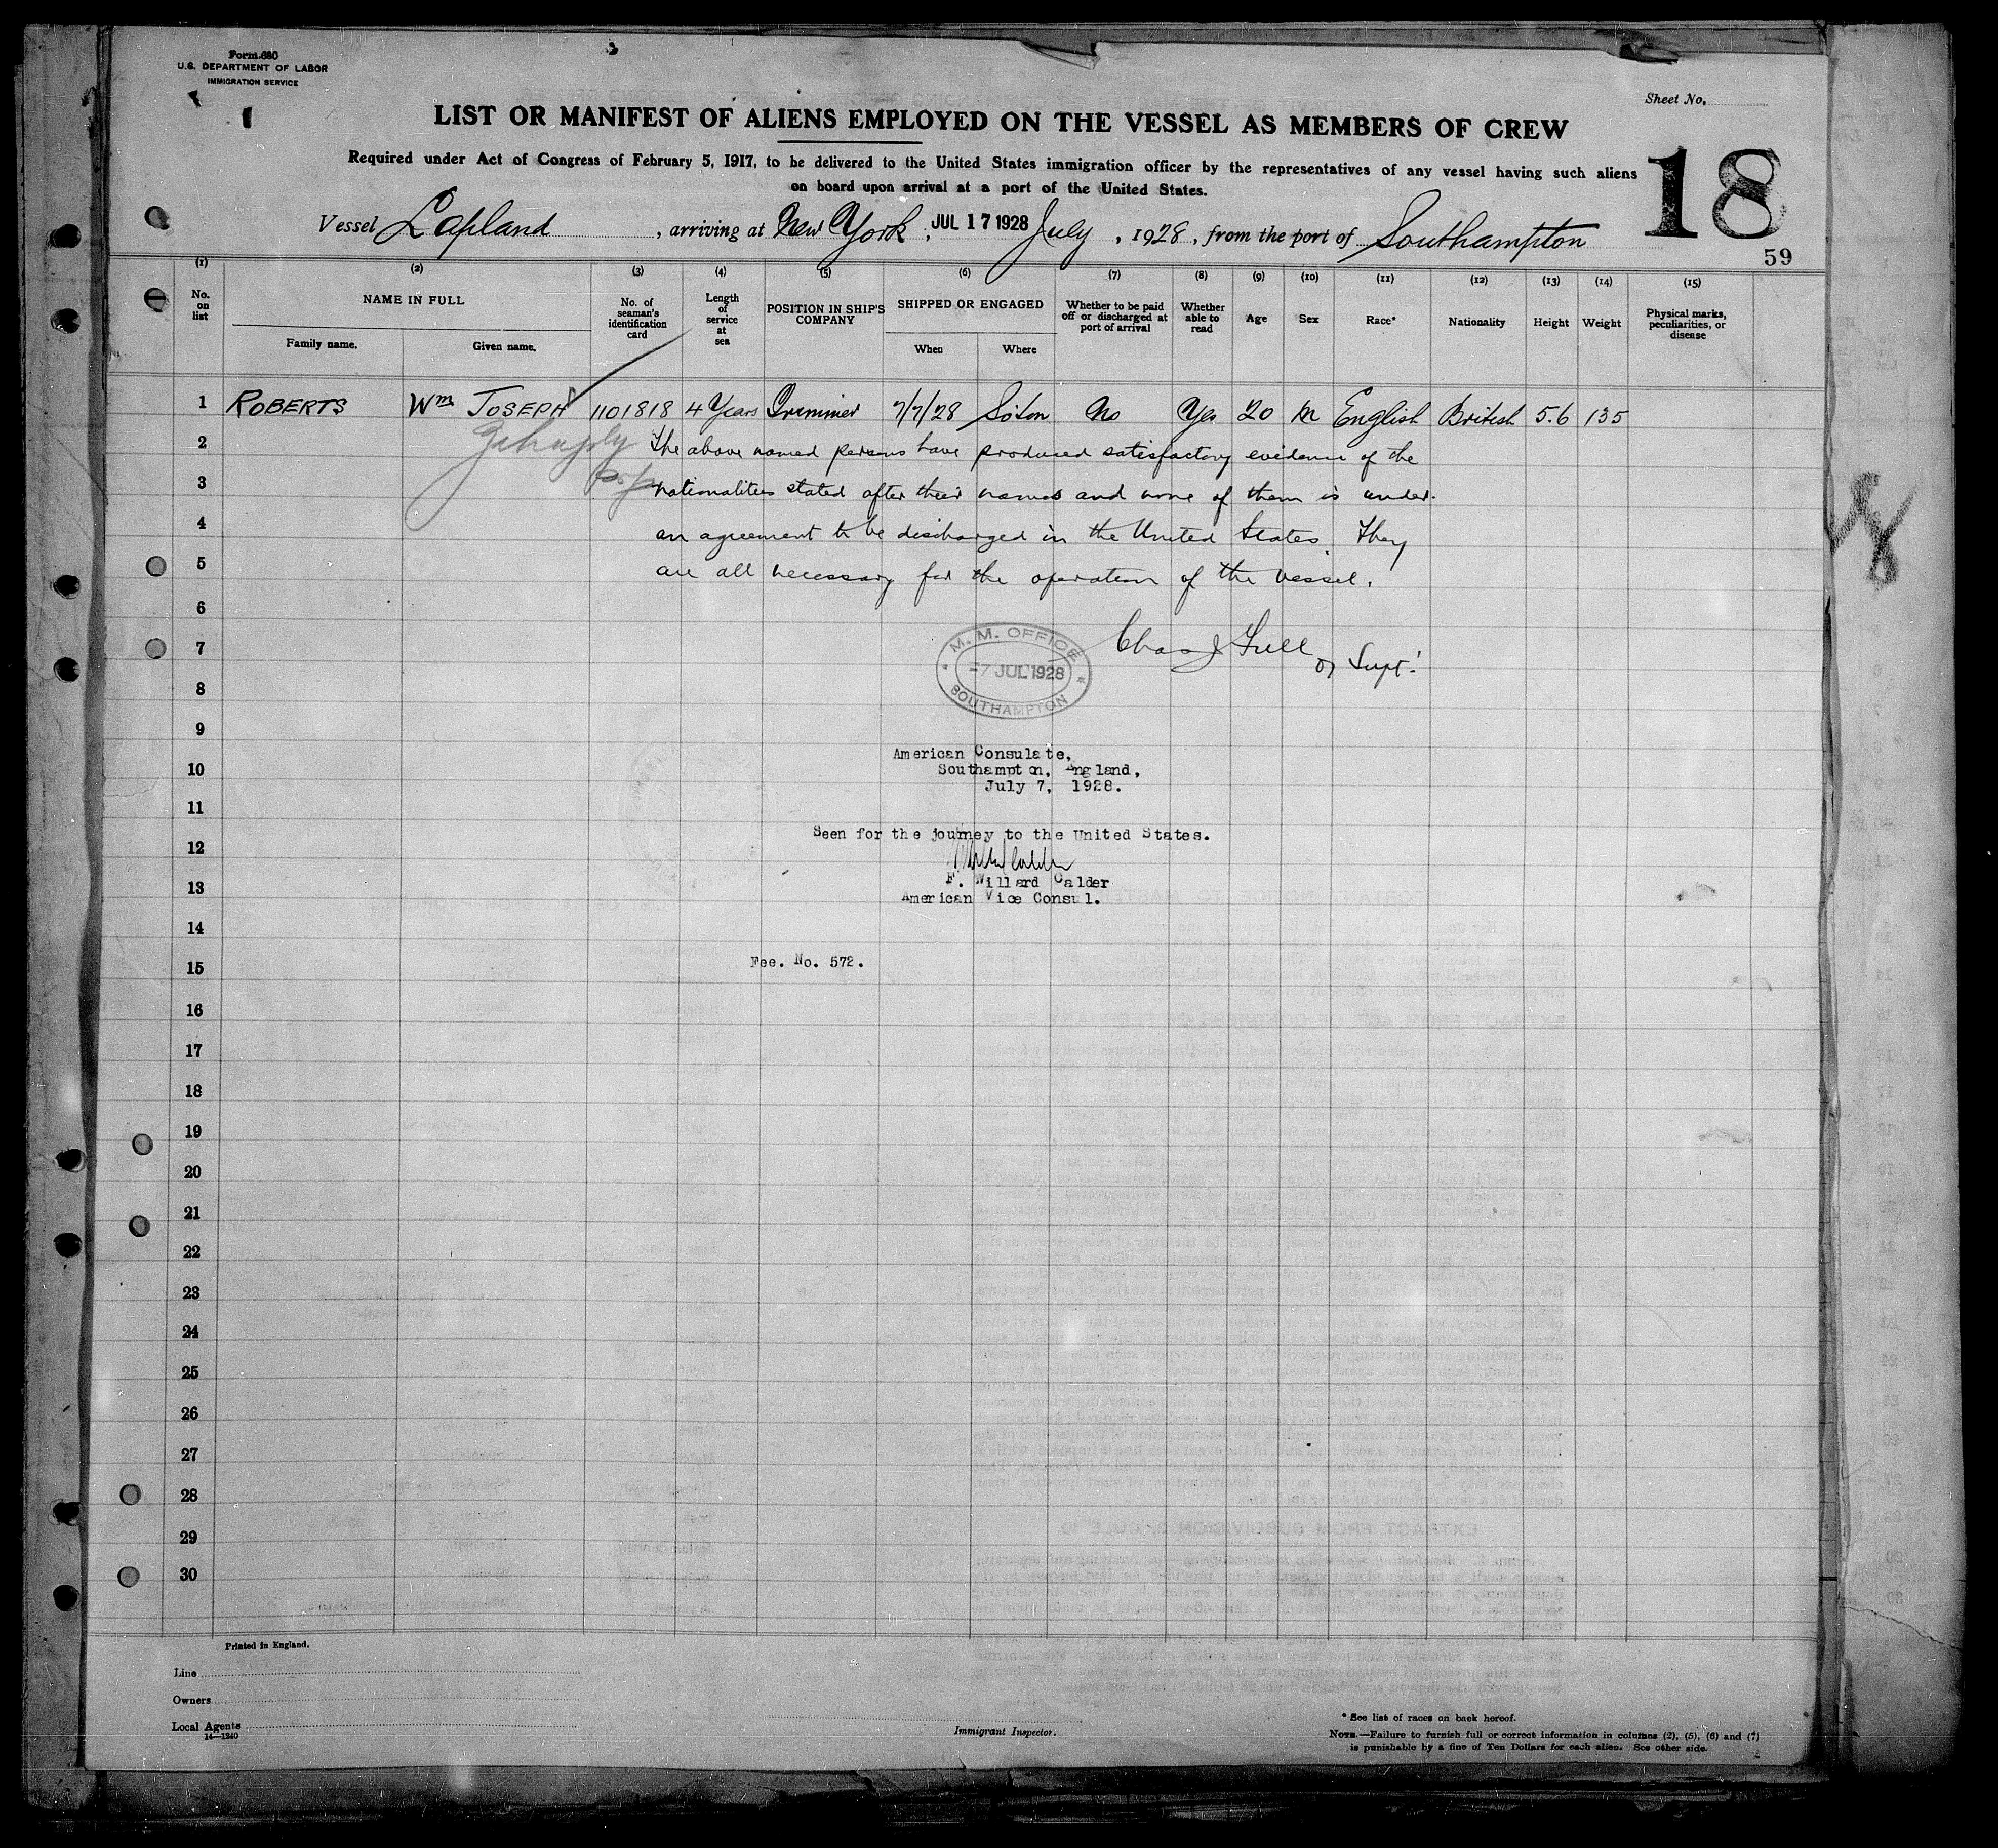 Form 680
U.S. DEPARTMENT OF LABOR
IMMIGRATION SERVICE
Sheet No.
LIST OR MANIFEST OF ALIENS EMPLOYED ON THE VESSEL AS MEMBERS OF CREW
Required under Act of Congress of February 5, 1917, to be delivered to the United States immigration officer by the representatives of any vessel having such aliens
on board upon arrival at a port of the United States.
18
Vessel Lapland, arriving at New York, JUL 17 1928 July, 1928, from the port of Southampton
59
(1) (2) (3) (4) (5) (6) (7) (8) (9) (10) (11) (12) (13) (14) (15)
No. on list NAME IN FULL Family name. Given name. No. of seaman's identification card Length of service at sea POSITION IN SHIP'S COMPANY SHIPPED OR ENGAGED When Where Whether to be paid off or discharged at port of arrival Whether able to read Age Sex Race* Nationality Height Weight Physical marks, peculiarities, or disease
1 ROBERTS Wm JOSEPH 1101818 4 Years Trimmer 7/7/28 Soton No Yes 20 M English British 5.6 135
2 The above named persons have produced satisfactory evidence of the
3 nationalities stated after their names and none of them is under
4 an agreement to be discharged in the United States. They
5 are all necessary for the operation of the vessel.
6
7 Chas J Supt.
M. M. OFFICE
7 JUL 1928
SOUTHAMPTON
8
9
American Consulate,
10 Southampton, England,
July 7, 1928.
11
Seen for the journey to the United States.
12
F. Willard Calder
13
American Vice Consul.
14
15 Fee. No. 572.
16
17
18
19
20
21
22
23
24
25
26
27
28
29
30
Printed in England.
Line
Owners
Local Agents
14—1240
Immigrant Inspector.
* See list of races on back hereof.
NOTE.—Failure to furnish full or correct information in columns (2), (5), (6) and (7)
is punishable by a fine of Ten Dollars for each alien. See other side.